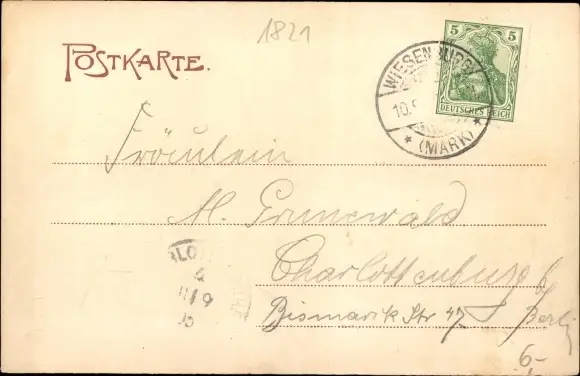 1821
POSTKARTE.
5 5
DEUTSCHES REICH
WIESENBURG
10.9
* (MARK) *
Fräulein
M. Grunewald
Charlottenburg b
Bismarik Str 47 Berlin
11/9
6,-